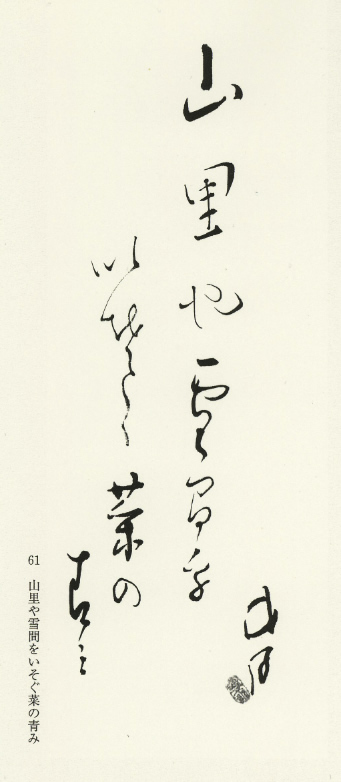 山里や雪間を
いそぐ菜の
青み
61 山里や雪間をいそぐ菜の青み